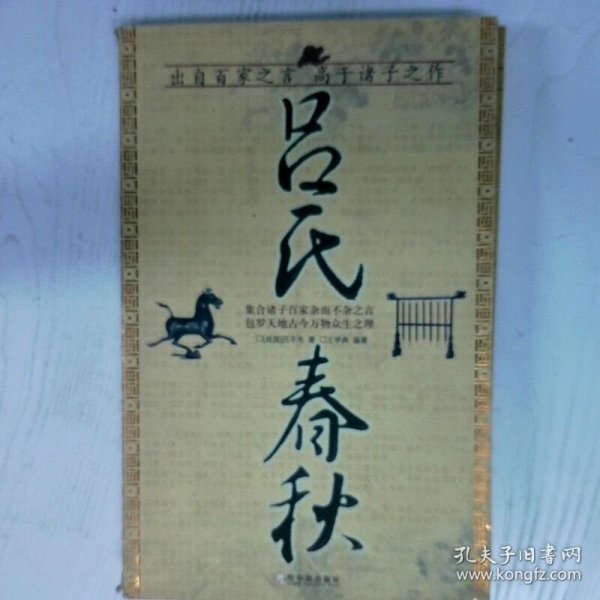 出自百家之言 高于诸子之作
吕氏春秋
集合诸子百家杂而不杂之言
包罗天地古今万物众生之理
[战国]吕不韦 著 编著
孔夫子旧书网
www.kongfz.com